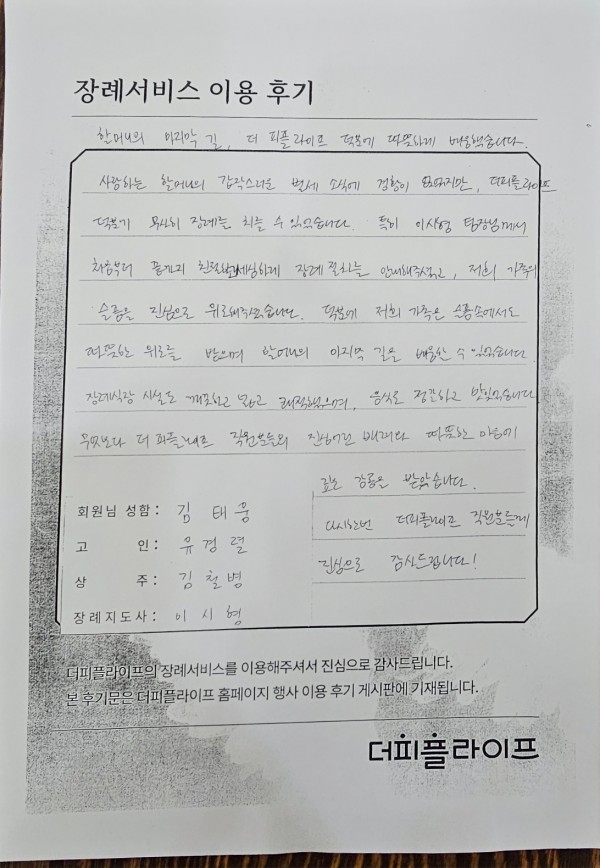 장례서비스 이용 후기
할머니의 마지막 길, 더 피플라이프 덕분에 따뜻하게 배웅했습니다.
사랑하는 할머니의 갑작스러운 별세 소식에 경황이 없었지만, 더피플라이프
덕분에 무사히 장례를 치를 수 있었습니다. 특히 이시형 팀장님께서
처음부터 끝까지 친절 세심하게 장례 절차를 안내해주셨고, 저희 가족의
슬픔을 진심으로 위로해주셨습니다. 덕분에 저희 가족은 슬픔속에서도
따뜻한 위로를 받으며 할머니의 마지막 길을 배웅할 수 있었습니다
장례식장 시설도 깨끗하고 넓고 쾌적했으며, 음식도 정갈하고 맛있었습니다
무엇보다 더 피플라이프 직원분들의 진심어린 배려와 따뜻한 마음에
큰 감동을 받았습니다.
다시한번 더피플라이프 직원분들께
진심으로 감사드립니다!
회원님 성함 : 김태웅
고 인 : 유경렬
상 주 : 김철병
장례지도사 : 이시형
더피플라이프의 장례서비스를 이용해주셔서 진심으로 감사드립니다.
본 후기문은 더피플라이프 홈페이지 행사 이용 후기 게시판에 기재됩니다.
더피플라이프